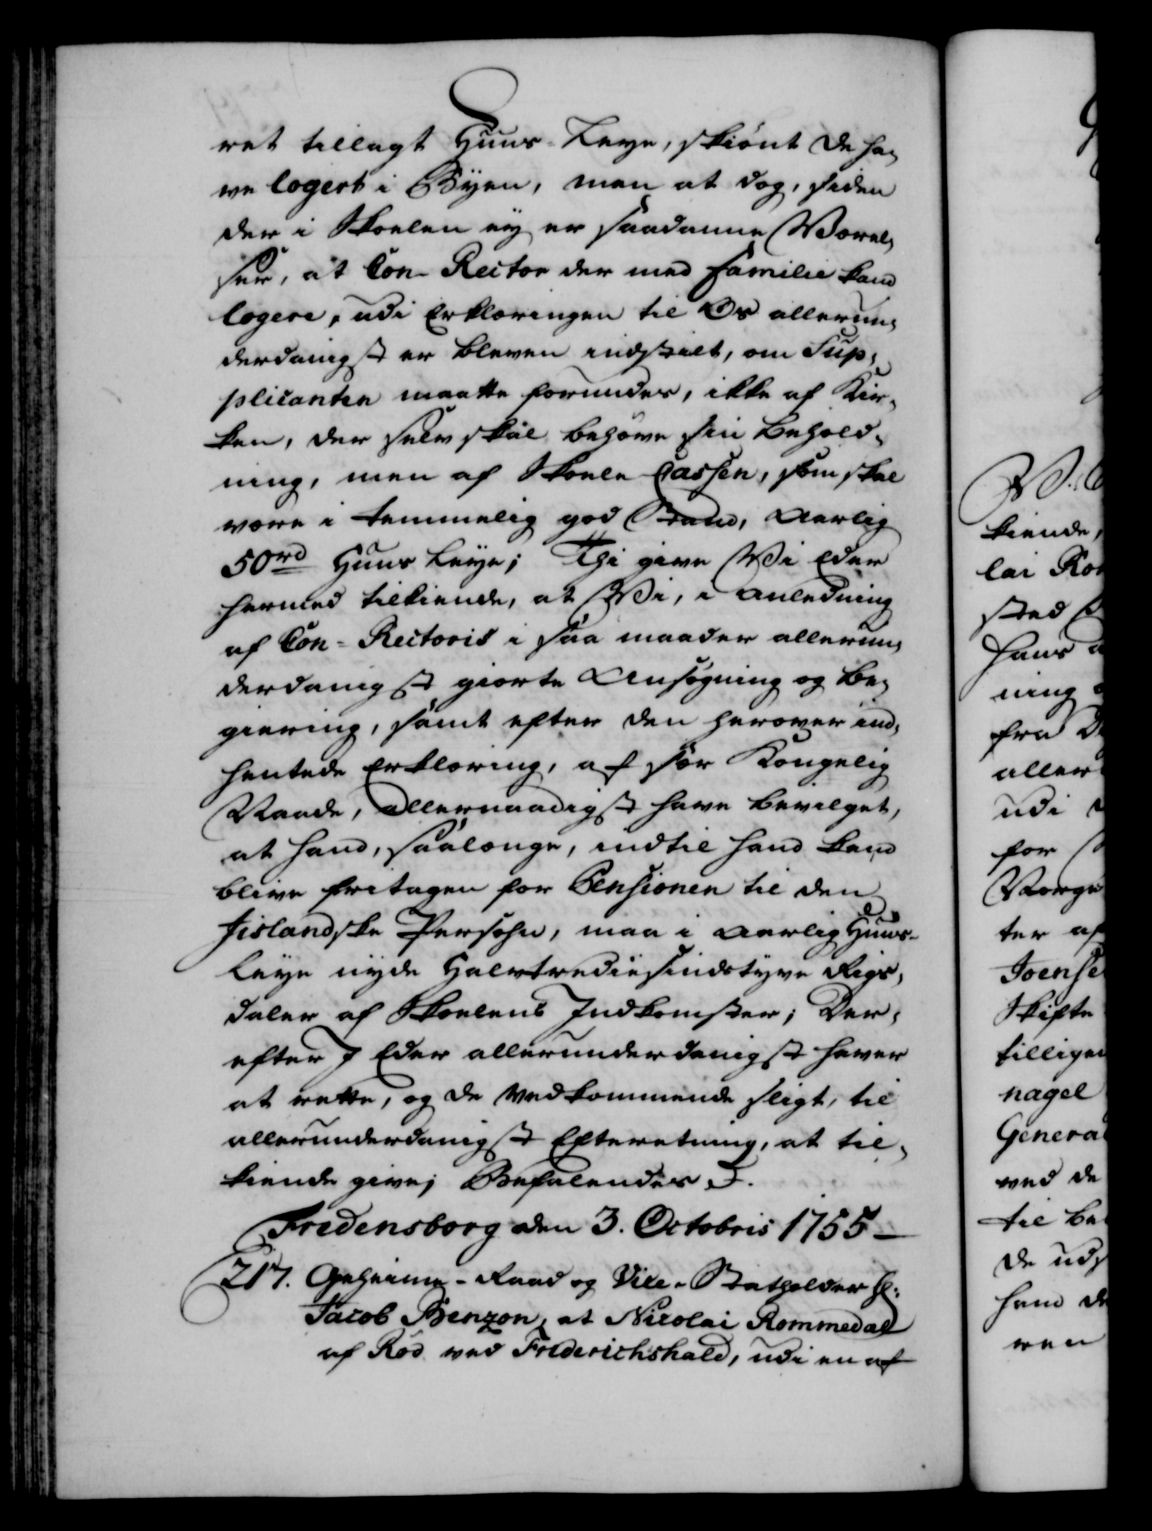 ret tillagt Huus-Leye, skiønt de ha-
ve logert i Byen, men at dog, siden
der i Skoelen ey er saadanne Værel-
ser, at Con-Rector der med familie kand
logere, udi Erklæringen til Os allerun-
derdanigst er bleven indstilt, om Sup-
plicanten maatte forundes, ikke af Kir-
ken, der selv skal behøve sin Behold-
ning, men af Skoele-Cassen, som skal
være i temmelig god Stand, aarlig
50rd Huus Leye; Thi give Vi Eder
hermed tilkiende, at Vi, i Anledning
af Con-Rectoris i saa maader allerun-
derdanigst giorte Ansøgning og Be-
giering, samt efter den herover ind-
hentede Erklæring, af sær Kongelig
Naade, Allernaadigst have bevilget,
at hand, saalænge, indtil hand kand
blive fritagen for Pensionen til den
Jislandske Persohn, maa i aarlig Huus-
Leye nyde Halvtrediesindstyve Rigs-
daler af Skoelens Indkomster; Der-
efter I Eder allerunderdanigst haver
at rette, og de Vedkommende sligt, til
allerunderdanigst Efterretning, at til-
kiende give; Befalendes
Fredensborg den 3. Octobris 1755
217. Geheime-Raad og Vice-Statholder Hr.
Jacob Benzon, at Nicolai Rommedal
af Rød ved Friderichshald, udi en af
kiende,
lai Ro
sted
hans a
ning
fra D
aller
udi
for
Norge
ter af
Joense
Skifte
tillige
nagel
General
ved de
til be
de uds
ham de
ren